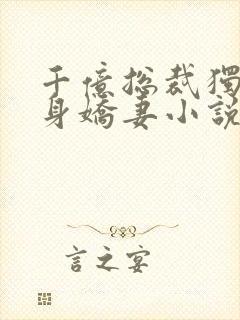 千億总裁獨
身嬌妻小說
言之宴